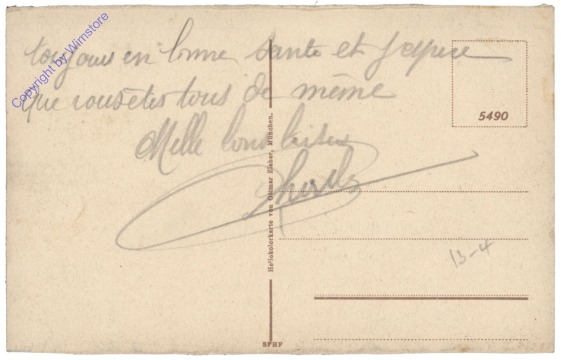 toujours en bonne santé et j'espère
que vous êtes tous de même
Mille bons baisers
5490
Heliokolorkarte von Ottmar Zieher, München.
13-4
SFHF
Copyright by Wimstore